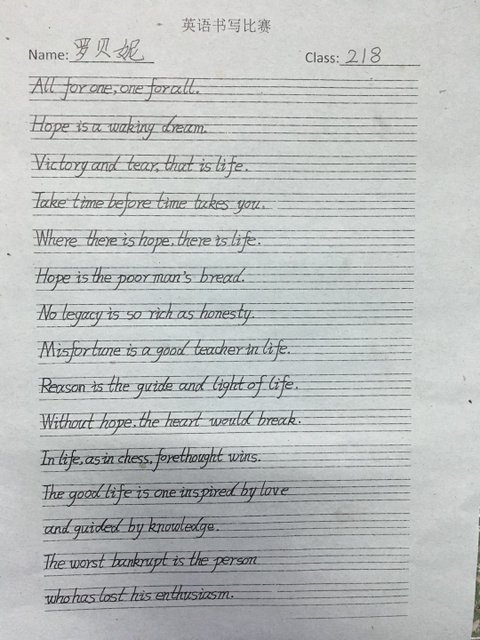 英语书写比赛
Name: 罗贝妮 Class: 218
All for one, one for all.
Hope is a waking dream.
Victory and tear, that is life.
Take time before time takes you.
Where there is hope, there is life.
Hope is the poor man's bread.
No legacy is so rich as honesty.
Misfortune is a good teacher in life.
Reason is the guide and light of life.
Without hope, the heart would break.
In life, as in chess, forethought wins.
The good life is one inspired by love
and guided by knowledge.
The worst bankrupt is the person
who has lost his enthusiasm.